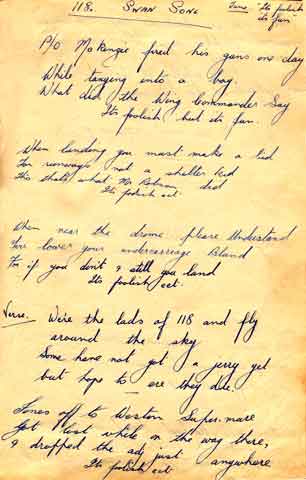 118. SWAN SONG
Tune "Its foolish
its fun"
P/O McKenzie fired his guns one day
While taxying into a bay.
What did the Wing Commander Say
Its foolish but its fun.
When landing you must make a bid
For runways not a shelter kid
Its thats what Mr did
Its foolish ect.
When near the drome please Understand
You lower your undercarriage and
For if you don't & still you land
Its foolish ect.
Verse. We're the lads of 118 and fly
around the sky
Some have not got a jerry yet
but hope to ere they die.
Jones off to Weston Super-mare
Got lost while on the way there,
& dropped the adj just anywhere
Its foolish ect